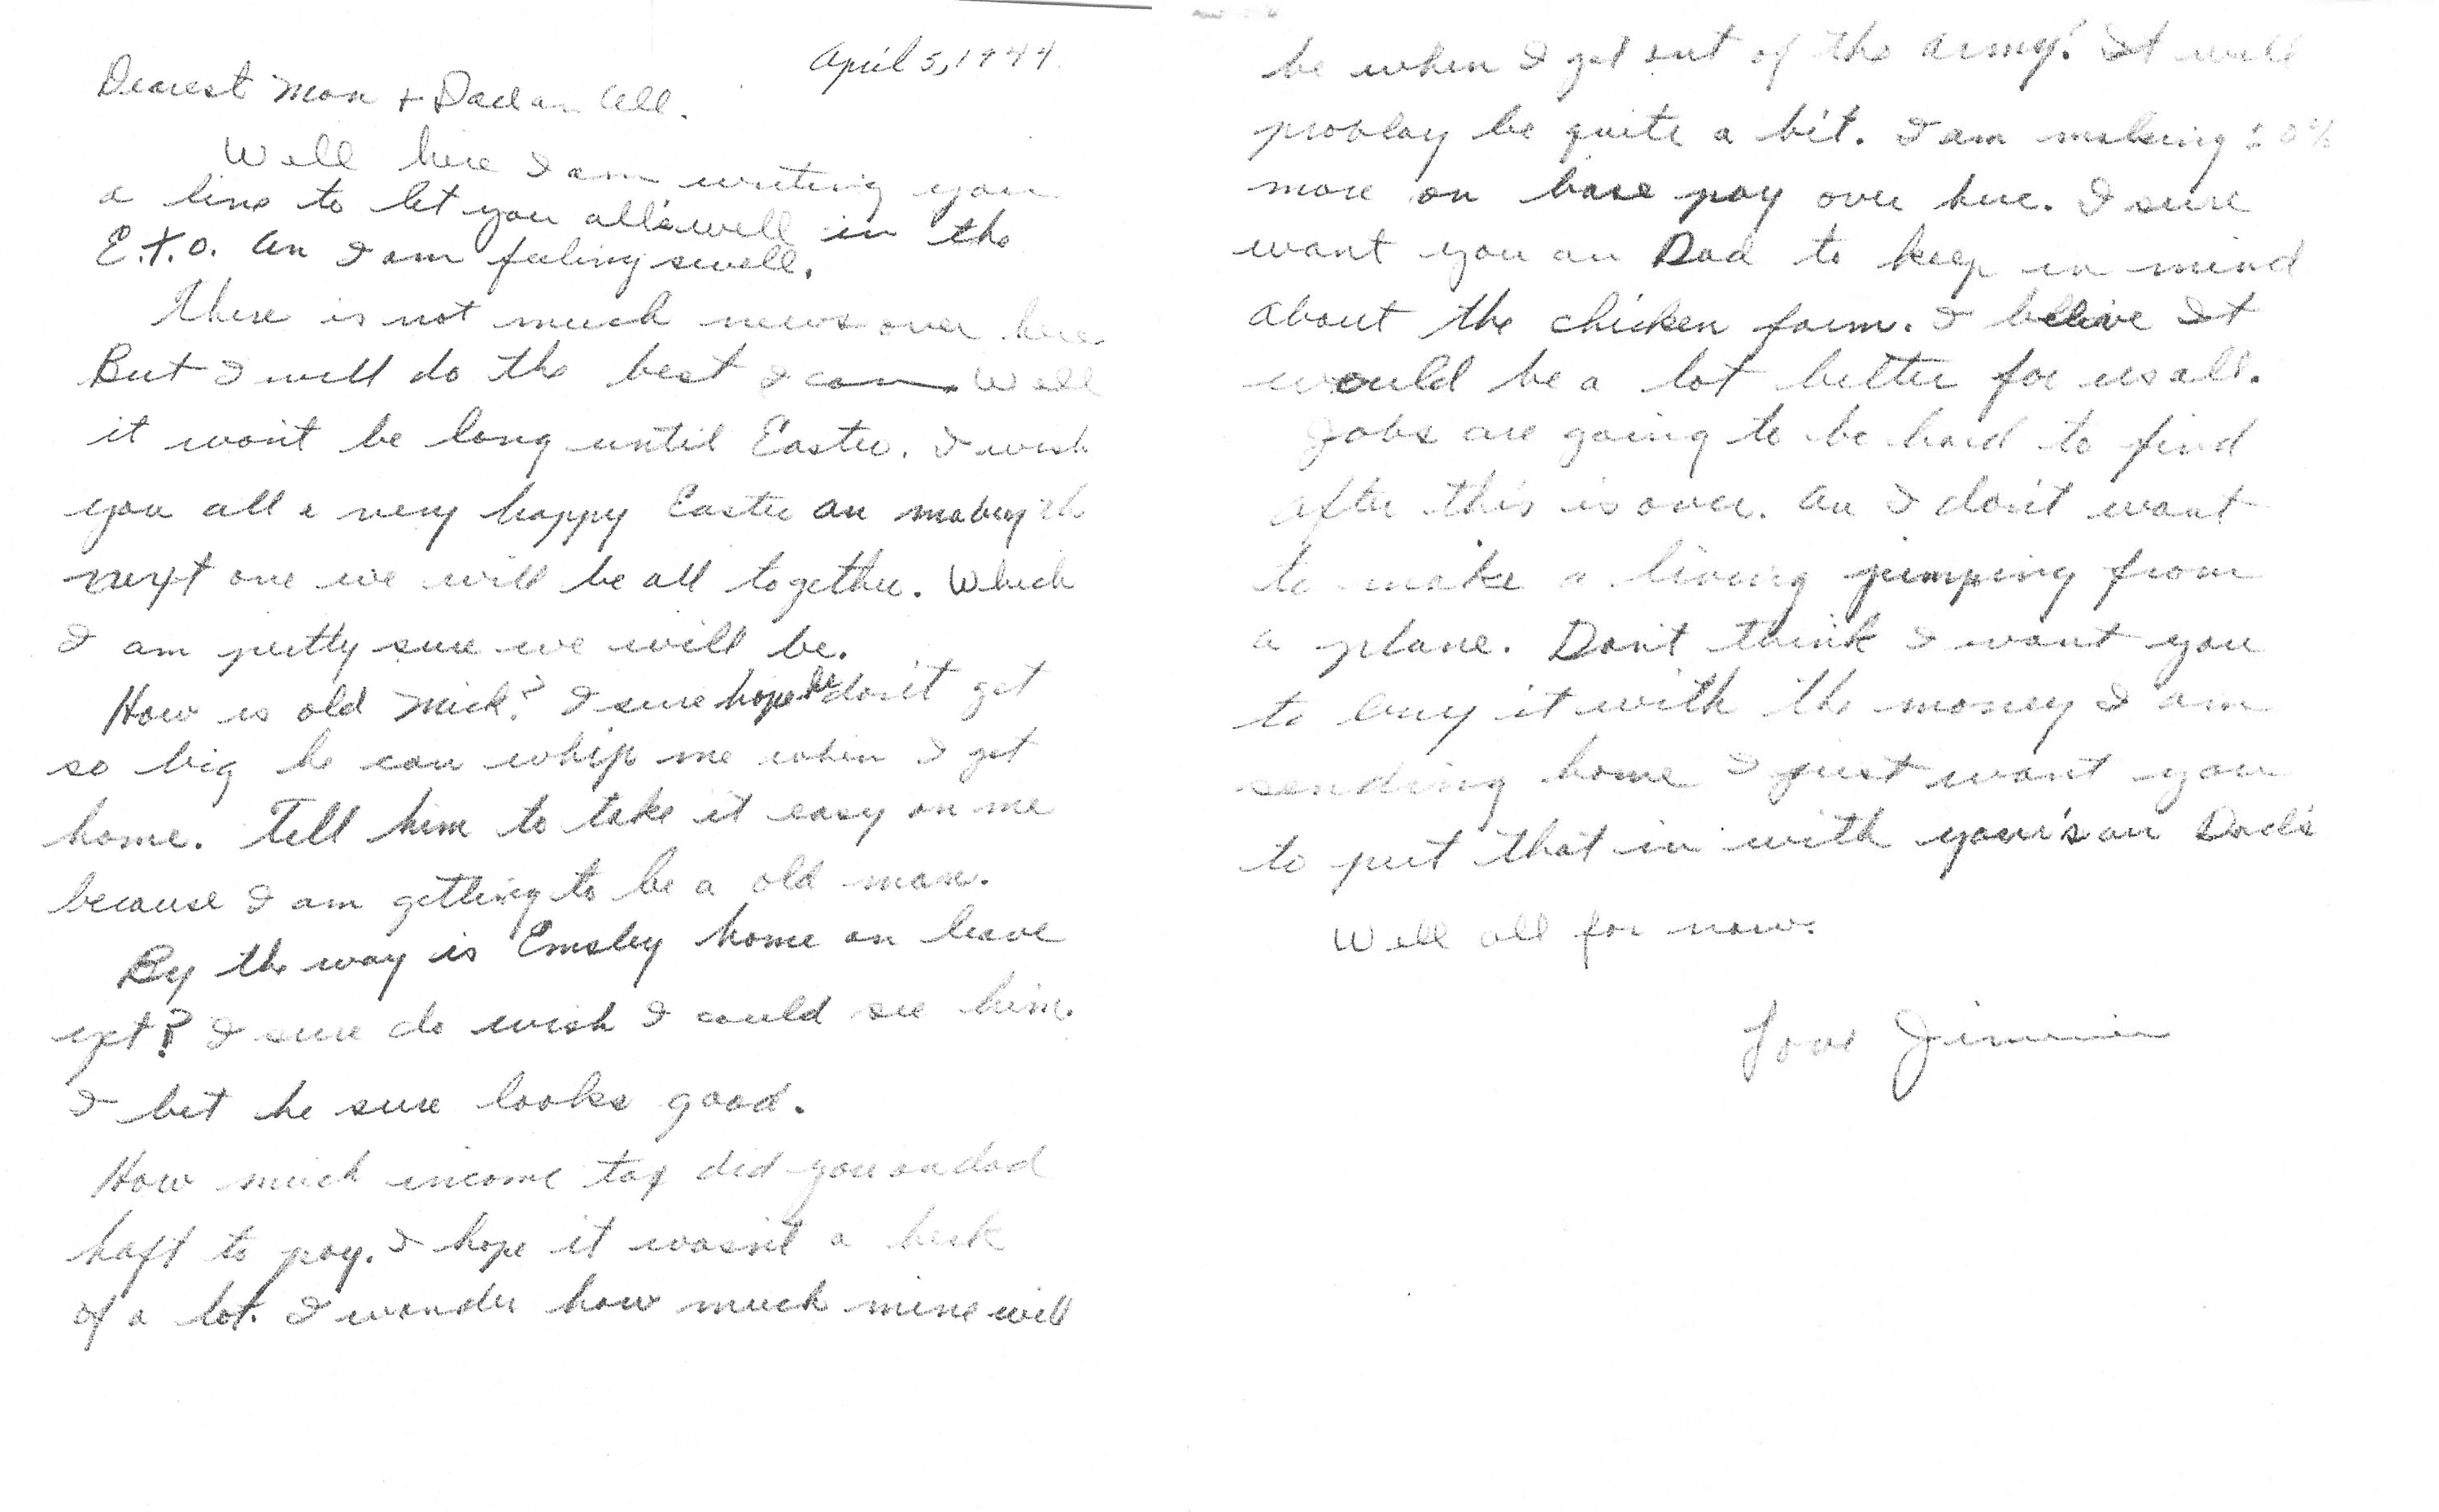 April 5, 1944
Dearest Mom + Dad an all.
Well here I am writing you
a line to let you all's well in the
E.T.O. an I am feeling swell.
There is not much news over here
But I will do the best I can. Well
it won't be long until Easter. I wish
you all a very happy Easter an mabey the
next one we will be all together. Which
I am pretty sure we will be.
How is old Mick? I sure hope he don't get
so big he can whip me when I get
home. Tell him to take it easy on me
because I am getting to be a old man.
By the way is Emsley home on leave
yet? I sure do wish I could see him.
I bet he sure looks good.
How much income tax did you an dad
haft to pay. I hope it wasn't a heck
of a lot. I wonder how much mine will
be when I get out of the army? It will
problay be quite a bit. I am making
more on base pay over here. I sure
want you an Dad to keep in mind
about the chicken farm. I belive It
would be a lot better for us all.
Jobs are going to be hard to find
after this is over. An I don't want
to make a living jumping from
a plane. Don't think I want you
to buy it with the money I am
sending home I just want you
to put that in with your's an Dad's
Well all for now.
Love Jimmie